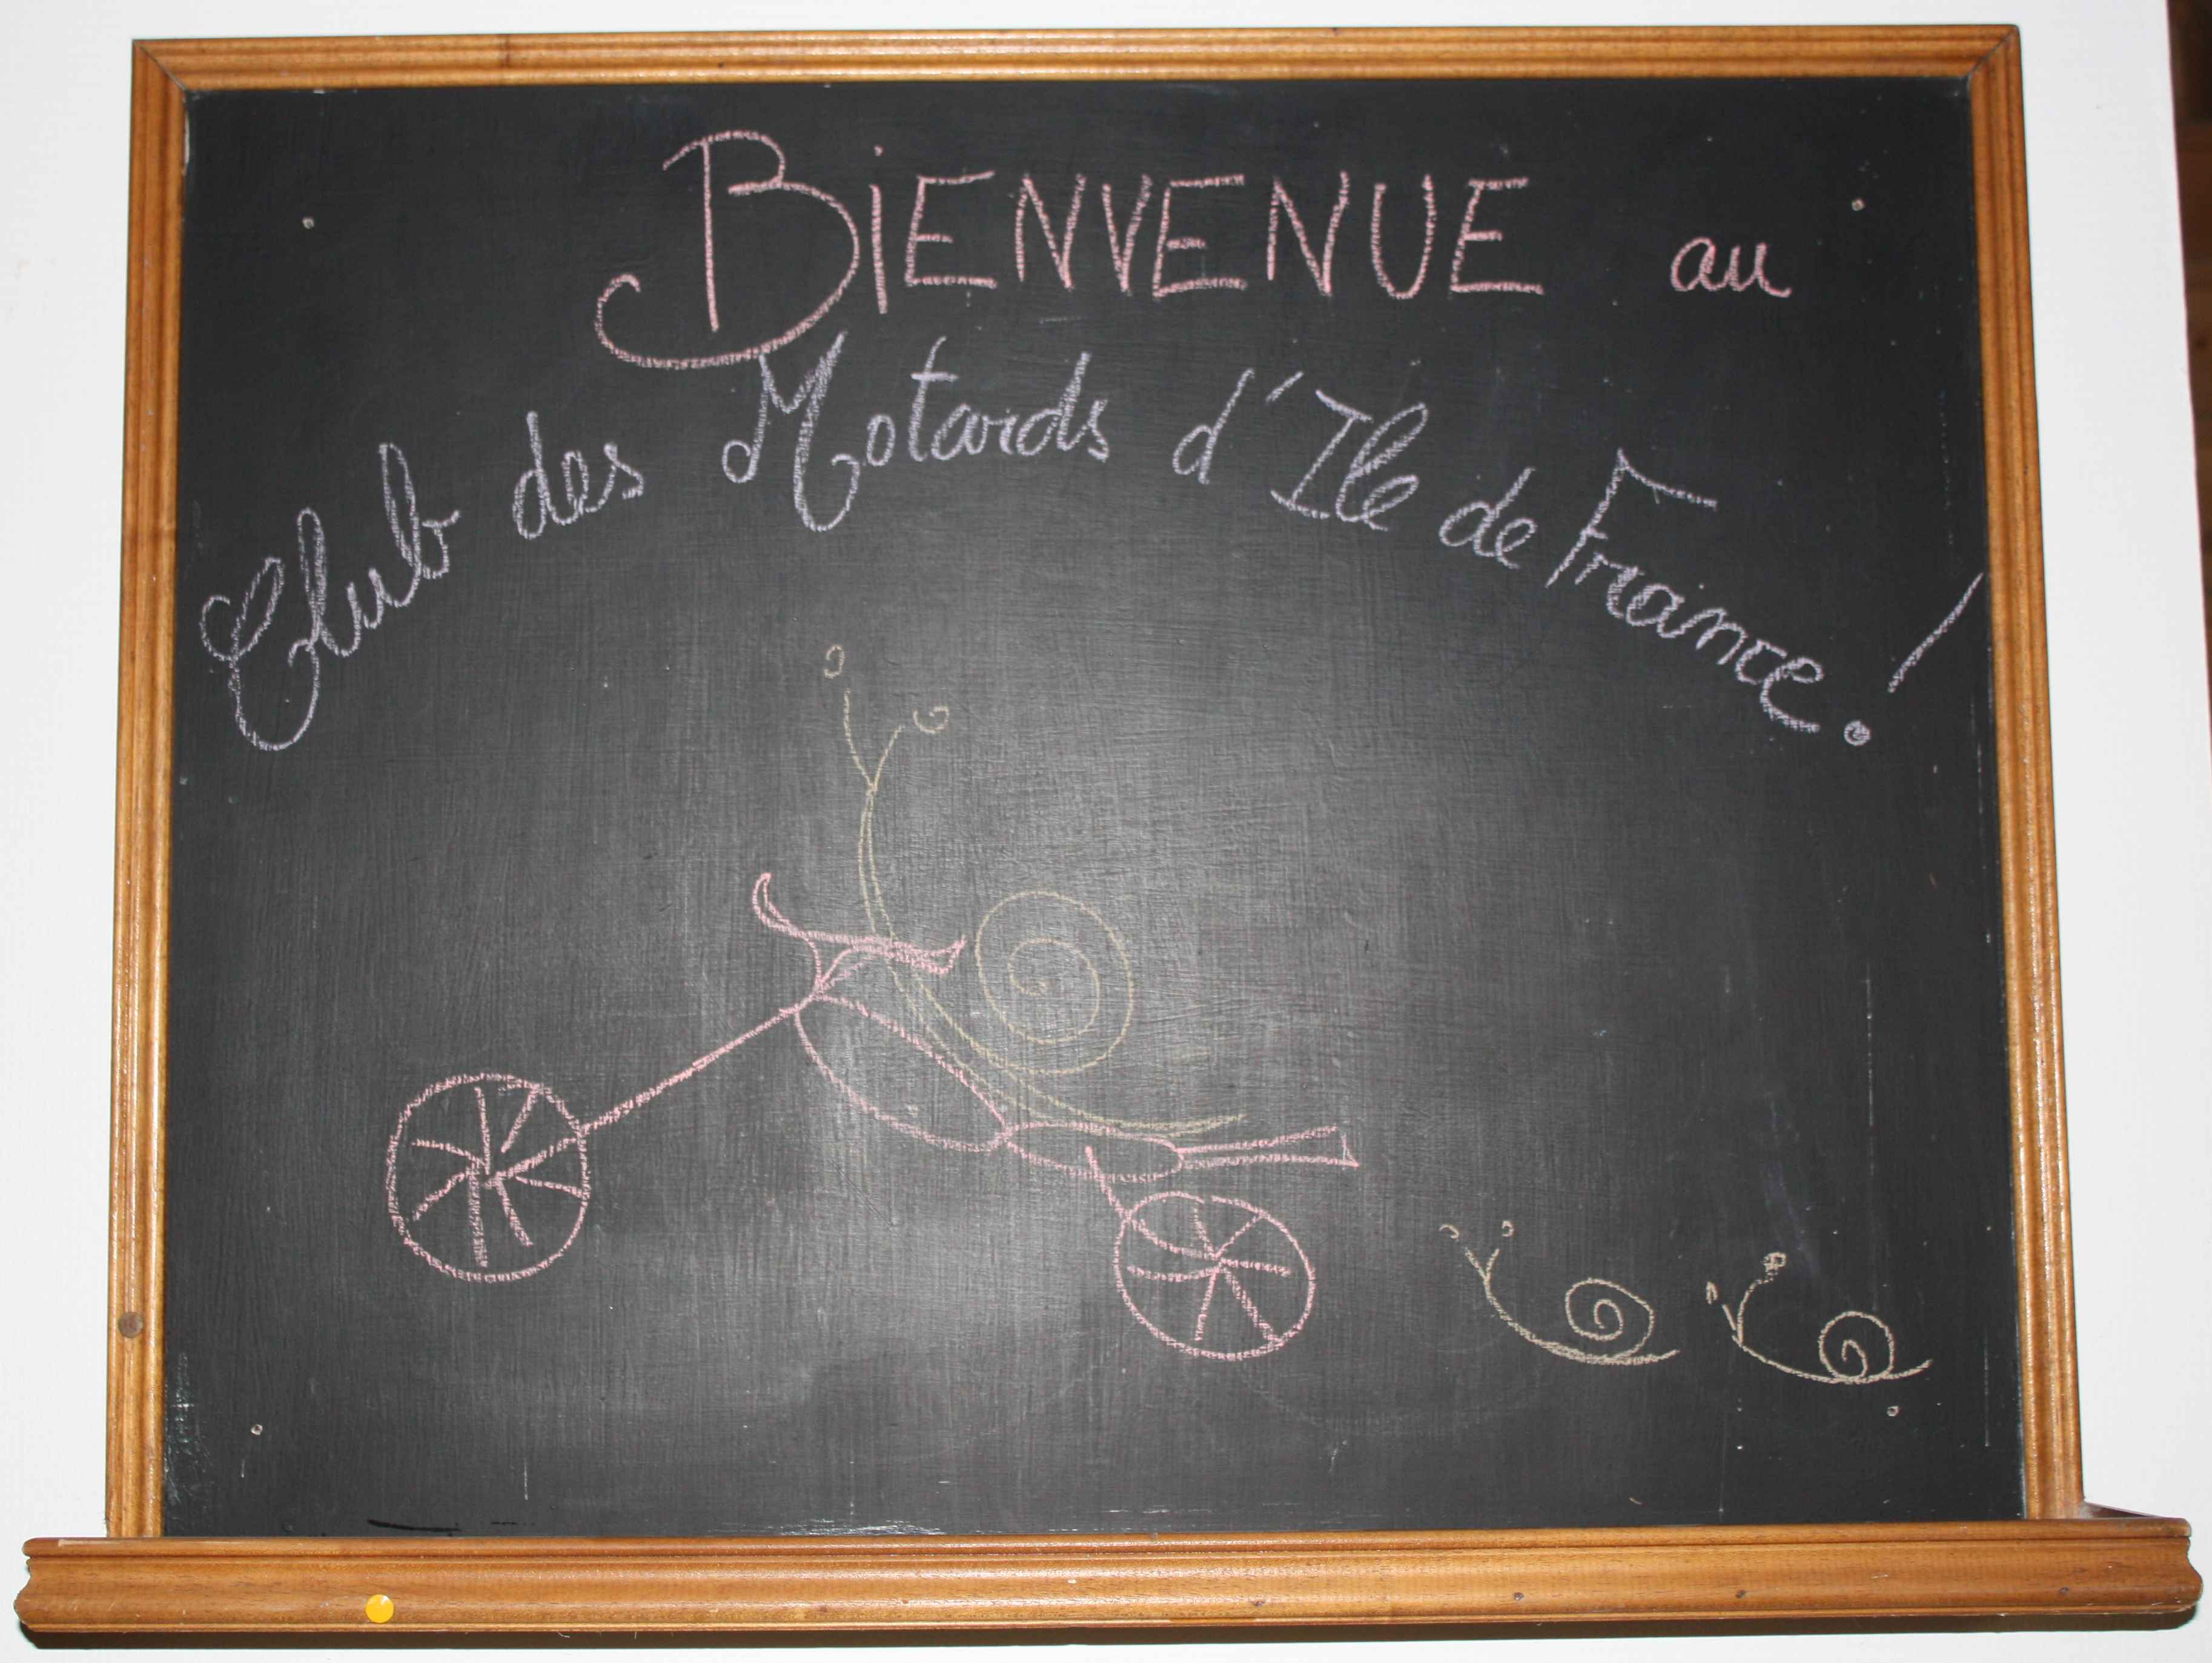 BiENVENUE au
Club des Motards d'Ile de France !